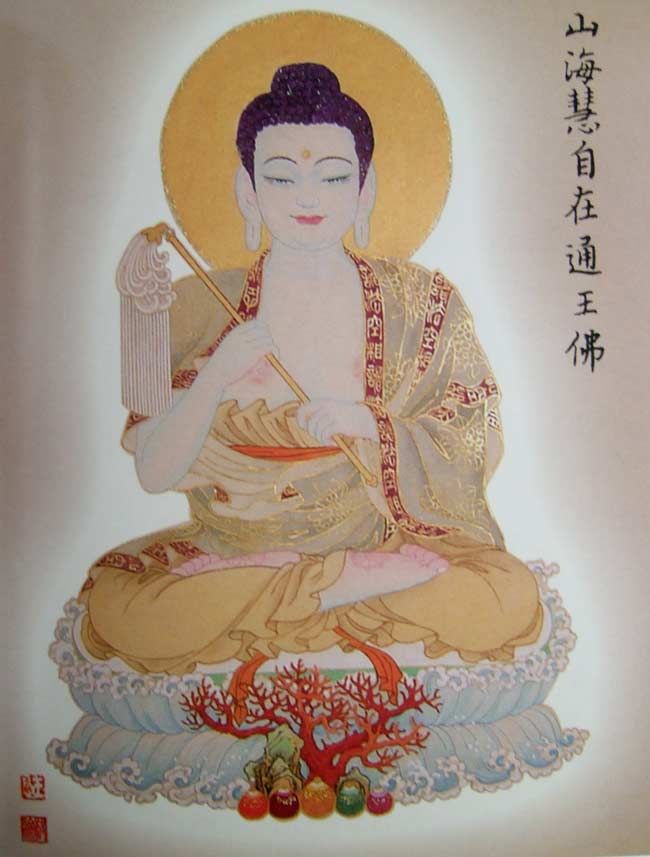 山海慧自在通王佛